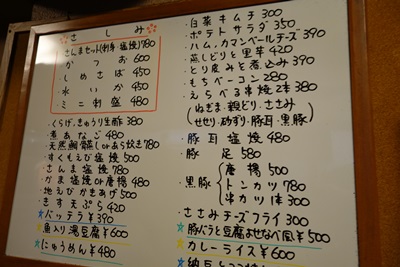 さしみ
さんまセット(刺身・塩焼)780
かつお 600
しめさば 450
水いか 450
ミニ刺盛 480
・くらげ、きゅうり生酢 380
・煮あなご 480
・天然鯛骸しorあら炊き780
・すくもえび塩焼 500
・さんま塩焼 780
・かま塩焼or唐揚 480
・地えびかきあげ 500
・きす天ぷら 420
☆バッテラ ¥390
☆魚入り湯豆腐 ¥600
☆にゅうめん ¥480
・白菜キムチ 300
・ポテトサラダ 350
・ハム、カマンベールチーズ 390
・蒸しどりと里芋 420
・とり皮みそ煮込み 390
・もちベーコン 280
・えらべる串焼2本 380
(ねぎま、親どり、ささみ
せせり、砂ずり、豚耳、黒豚)
・豚耳塩焼 480
・豚足 580
・黒豚
唐揚 500
トンカツ 780
串カツ1本 300
・ささみチーズフライ 300
☆豚バラと豆腐よせなべ風 ¥500
☆カレーライス ¥600